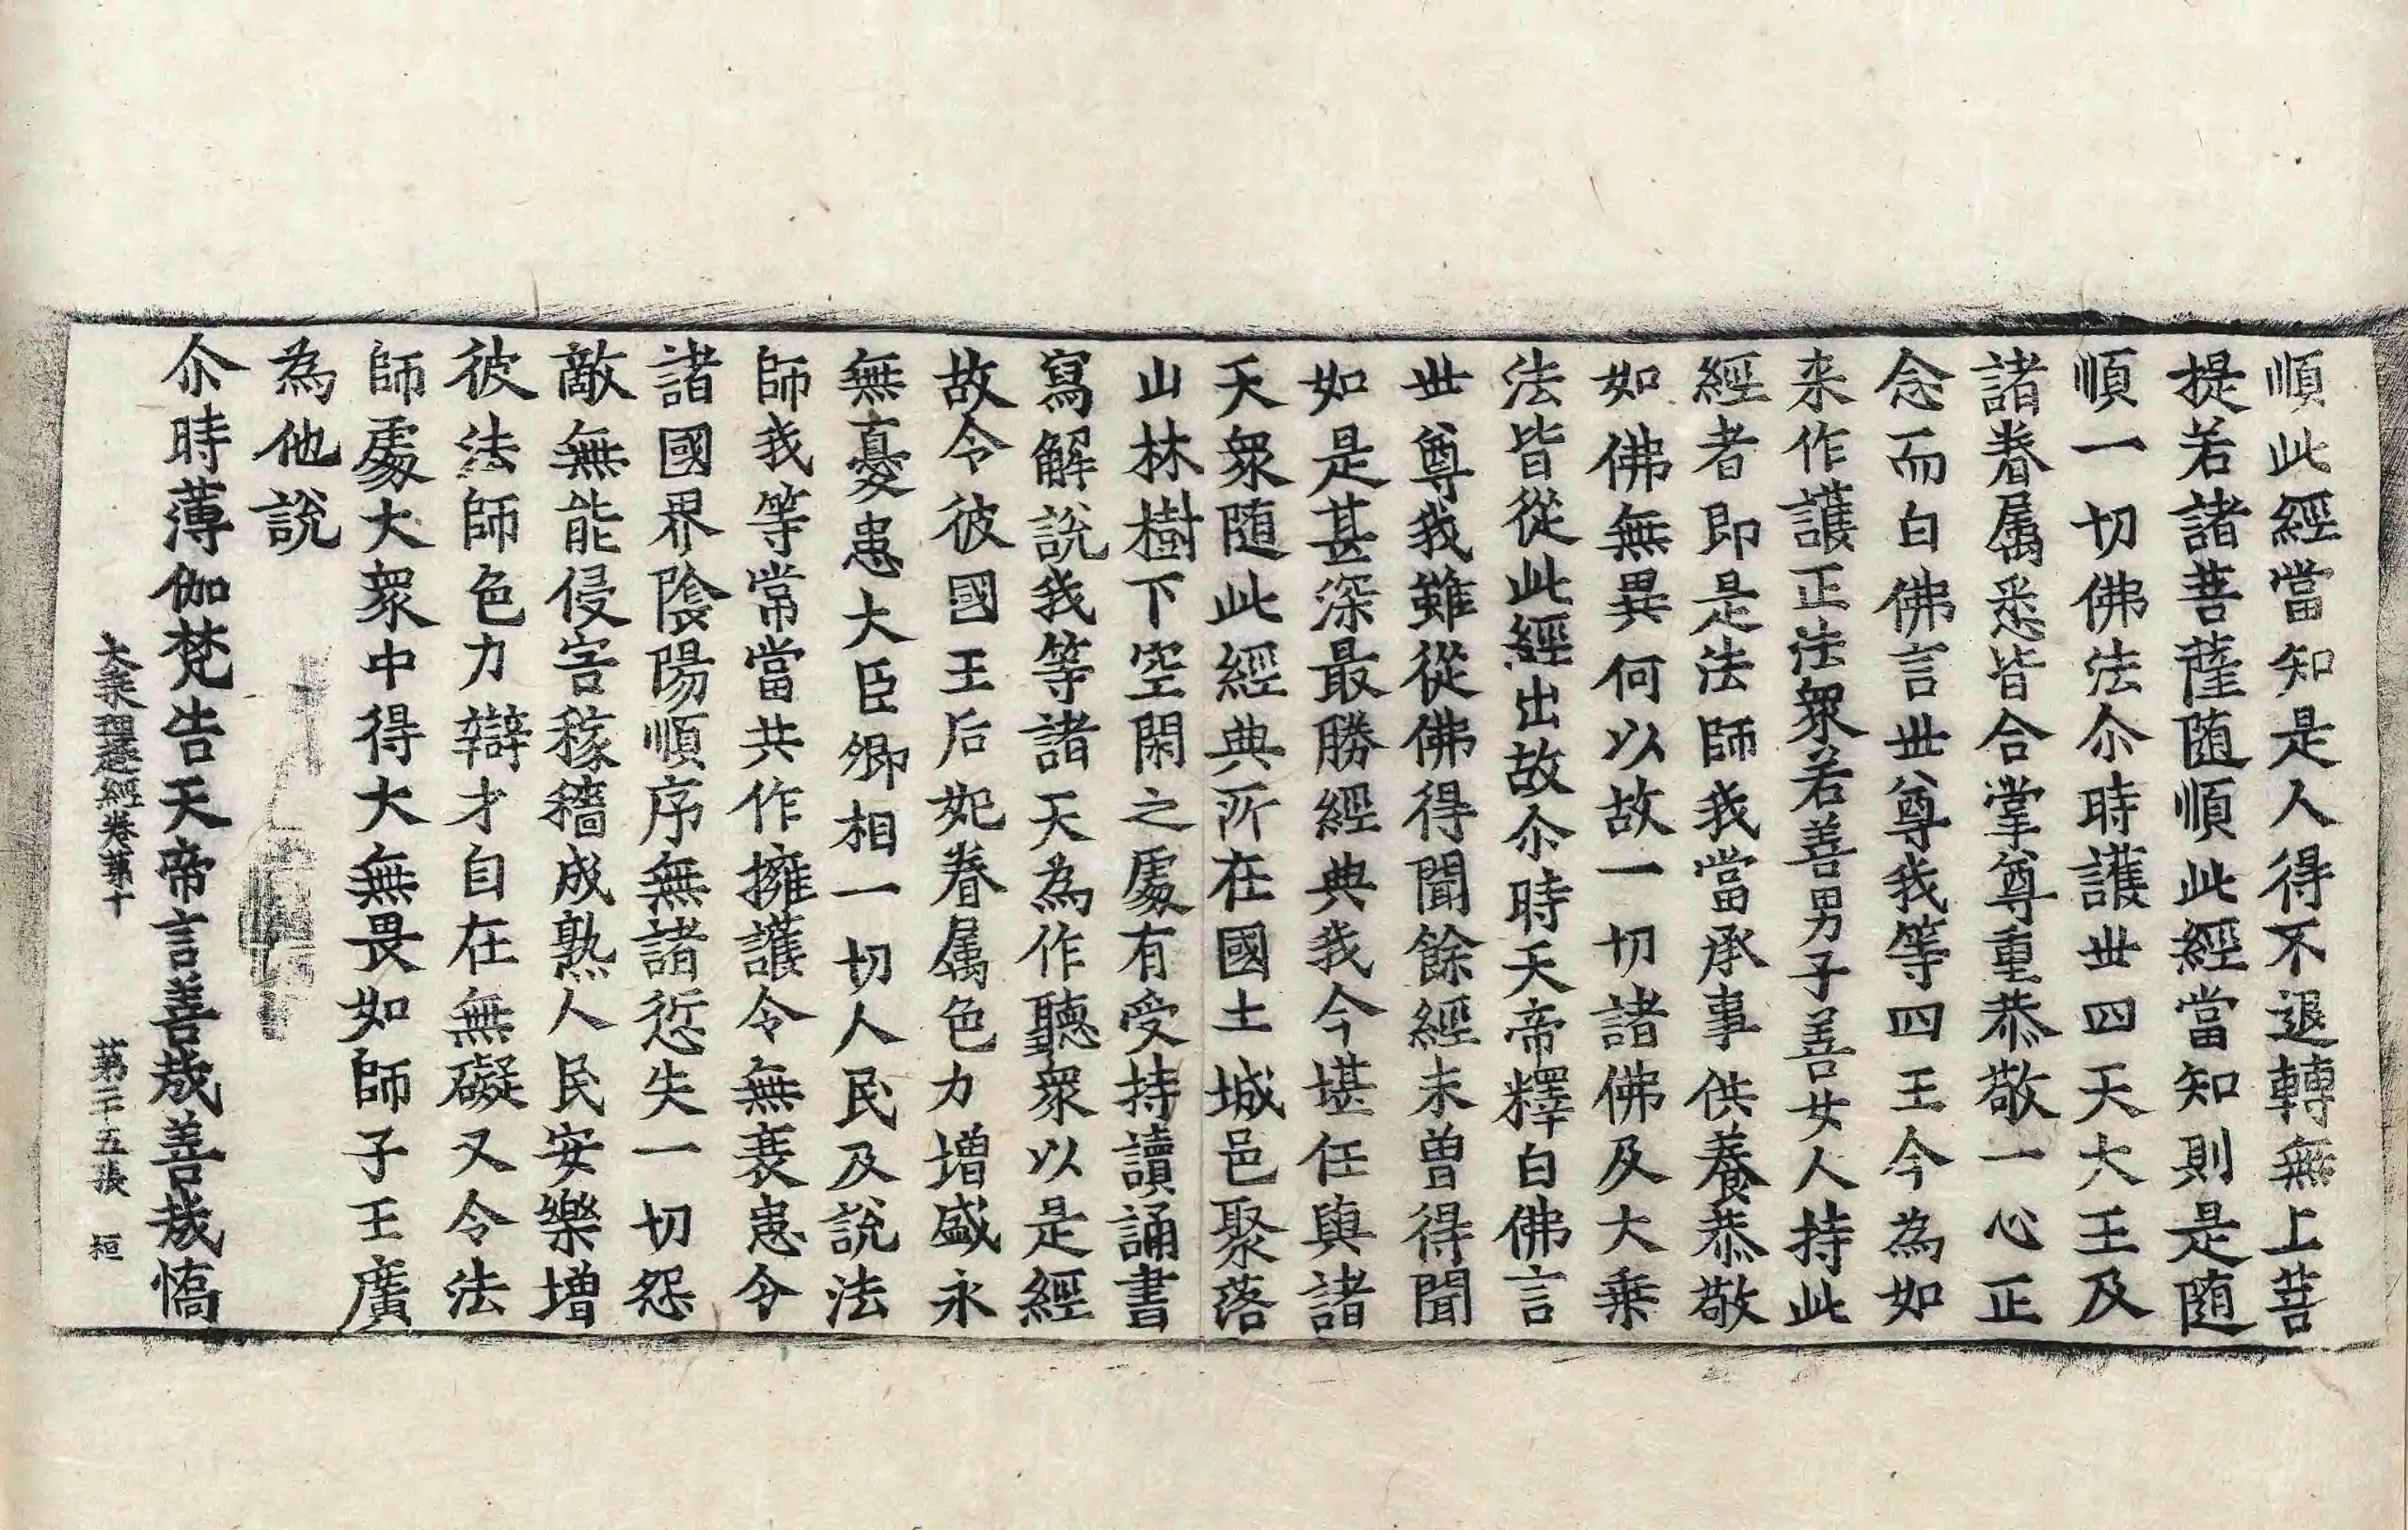 順此經當知是人得不退轉無上菩
提若諸菩薩随順此經當知則是随
順一切佛法尒時護丗四天大王及
諸眷属悉皆合掌尊重恭敬一心正
念而白佛言丗尊我等四王今為如
来作護正法衆若善男子善女人持此
經者即是法師我當承事供養恭敬
如佛無異何以故一切諸佛及大乗
法皆從此經出故尒時天帝釋白佛言
丗尊我雖從佛得聞餘經未曽得聞
如是甚深最勝經典我今堪任與諸
天衆随此經典所在國土城邑聚落
山林樹下空閑之處有受持讀誦書
寫解說我等諸天為作聽衆以是經
故令彼國王后妃眷属色力增盛永
無憂患大臣卿相一切人民及說法
師我等常當共作擁護令無衰患令
諸國界陰陽順序無諸愆失一切怨
敵無能侵害稼穡成熟人民安樂增
彼法師色力辯才自在無礙又令法
師處大衆中得大無畏如師子王廣
為他說
尒時薄伽梵告天帝言善哉善哉憍
大乘理趣經卷第十 第二十五張 桓